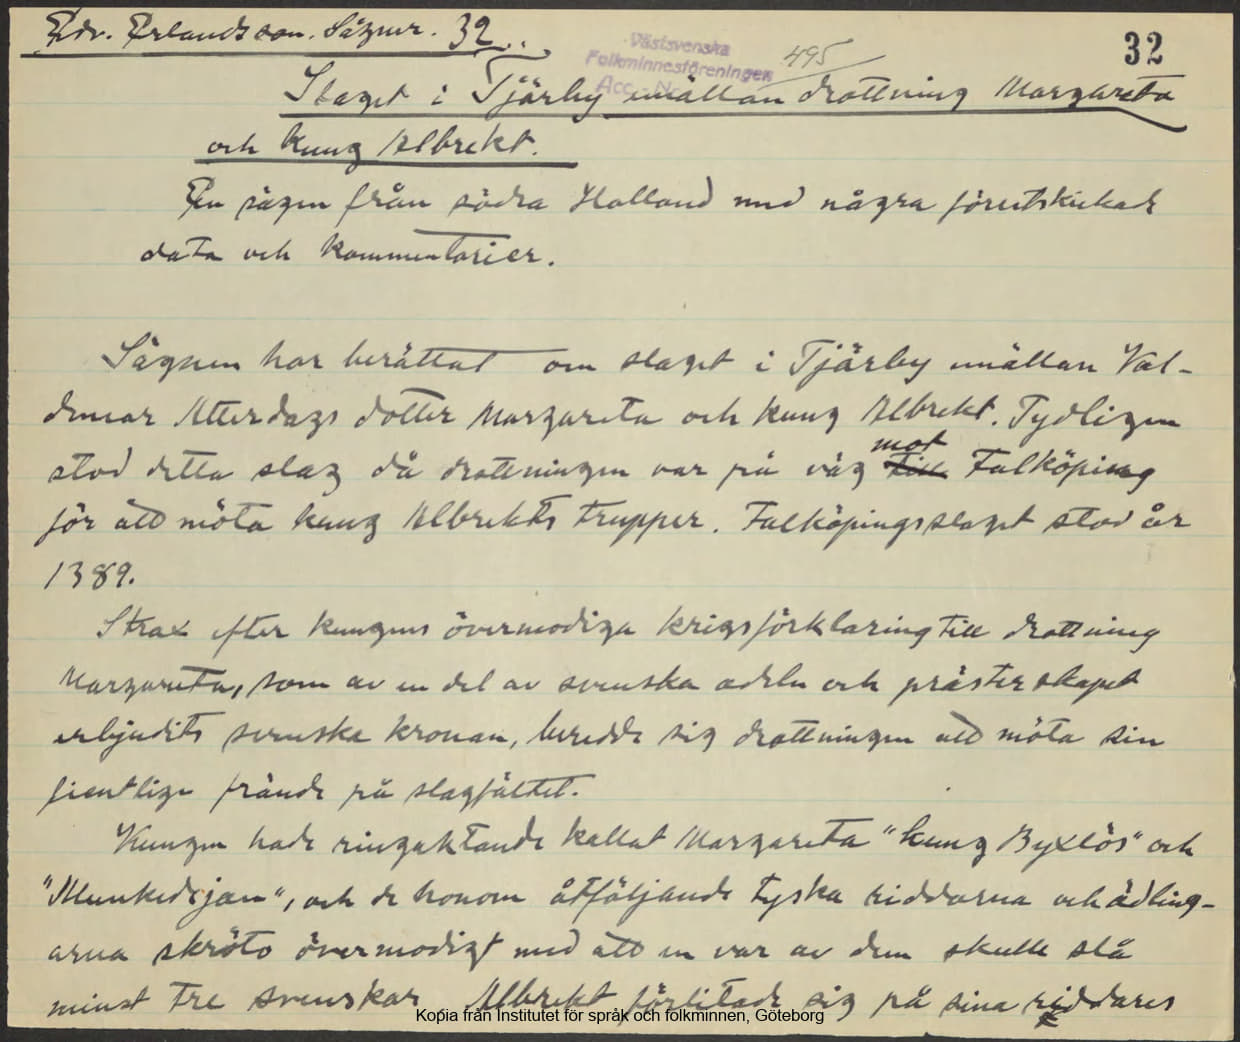 Edv. Erlandsson. Sägner. 32
Västsvenska
Folkminnesföreningen
Acc. Nr. 495
32
Slaget i Tjärby emällan drottning Margareta
och kung Albrekt.
En sägen från södra Halland med några förutskickade
data och kommentarier.
Sägnen har berättat om slaget i Tjärby emällan Val-
demar Atterdags dotter Margareta och kung Albrekt. Tydligen
stod detta slag då drottningen var på väg till mot Falköping
för att möta kung Albrekts trupper. Falköpingsslaget stod år
1389.
Strax efter kungens övermodiga krigsförklaring till drottning
Margareta, som av en del av svenska adeln och prästerskapet
erbjudits svenska kronan, beredde sig drottningen att möta sin
fientlige frände på slagfältet.
Kungen hade ringaktande kallat Margareta "kung Byxlös" och
"Munkedejan", och de honom åtföljande tyska riddarna och ädling-
arna skröto övermodigt med att en var av dem skulle slå
minst tre svenskar Albrekt förlitade sig på sina riddares
Kopia från Institutet för språk och folkminnen, Göteborg